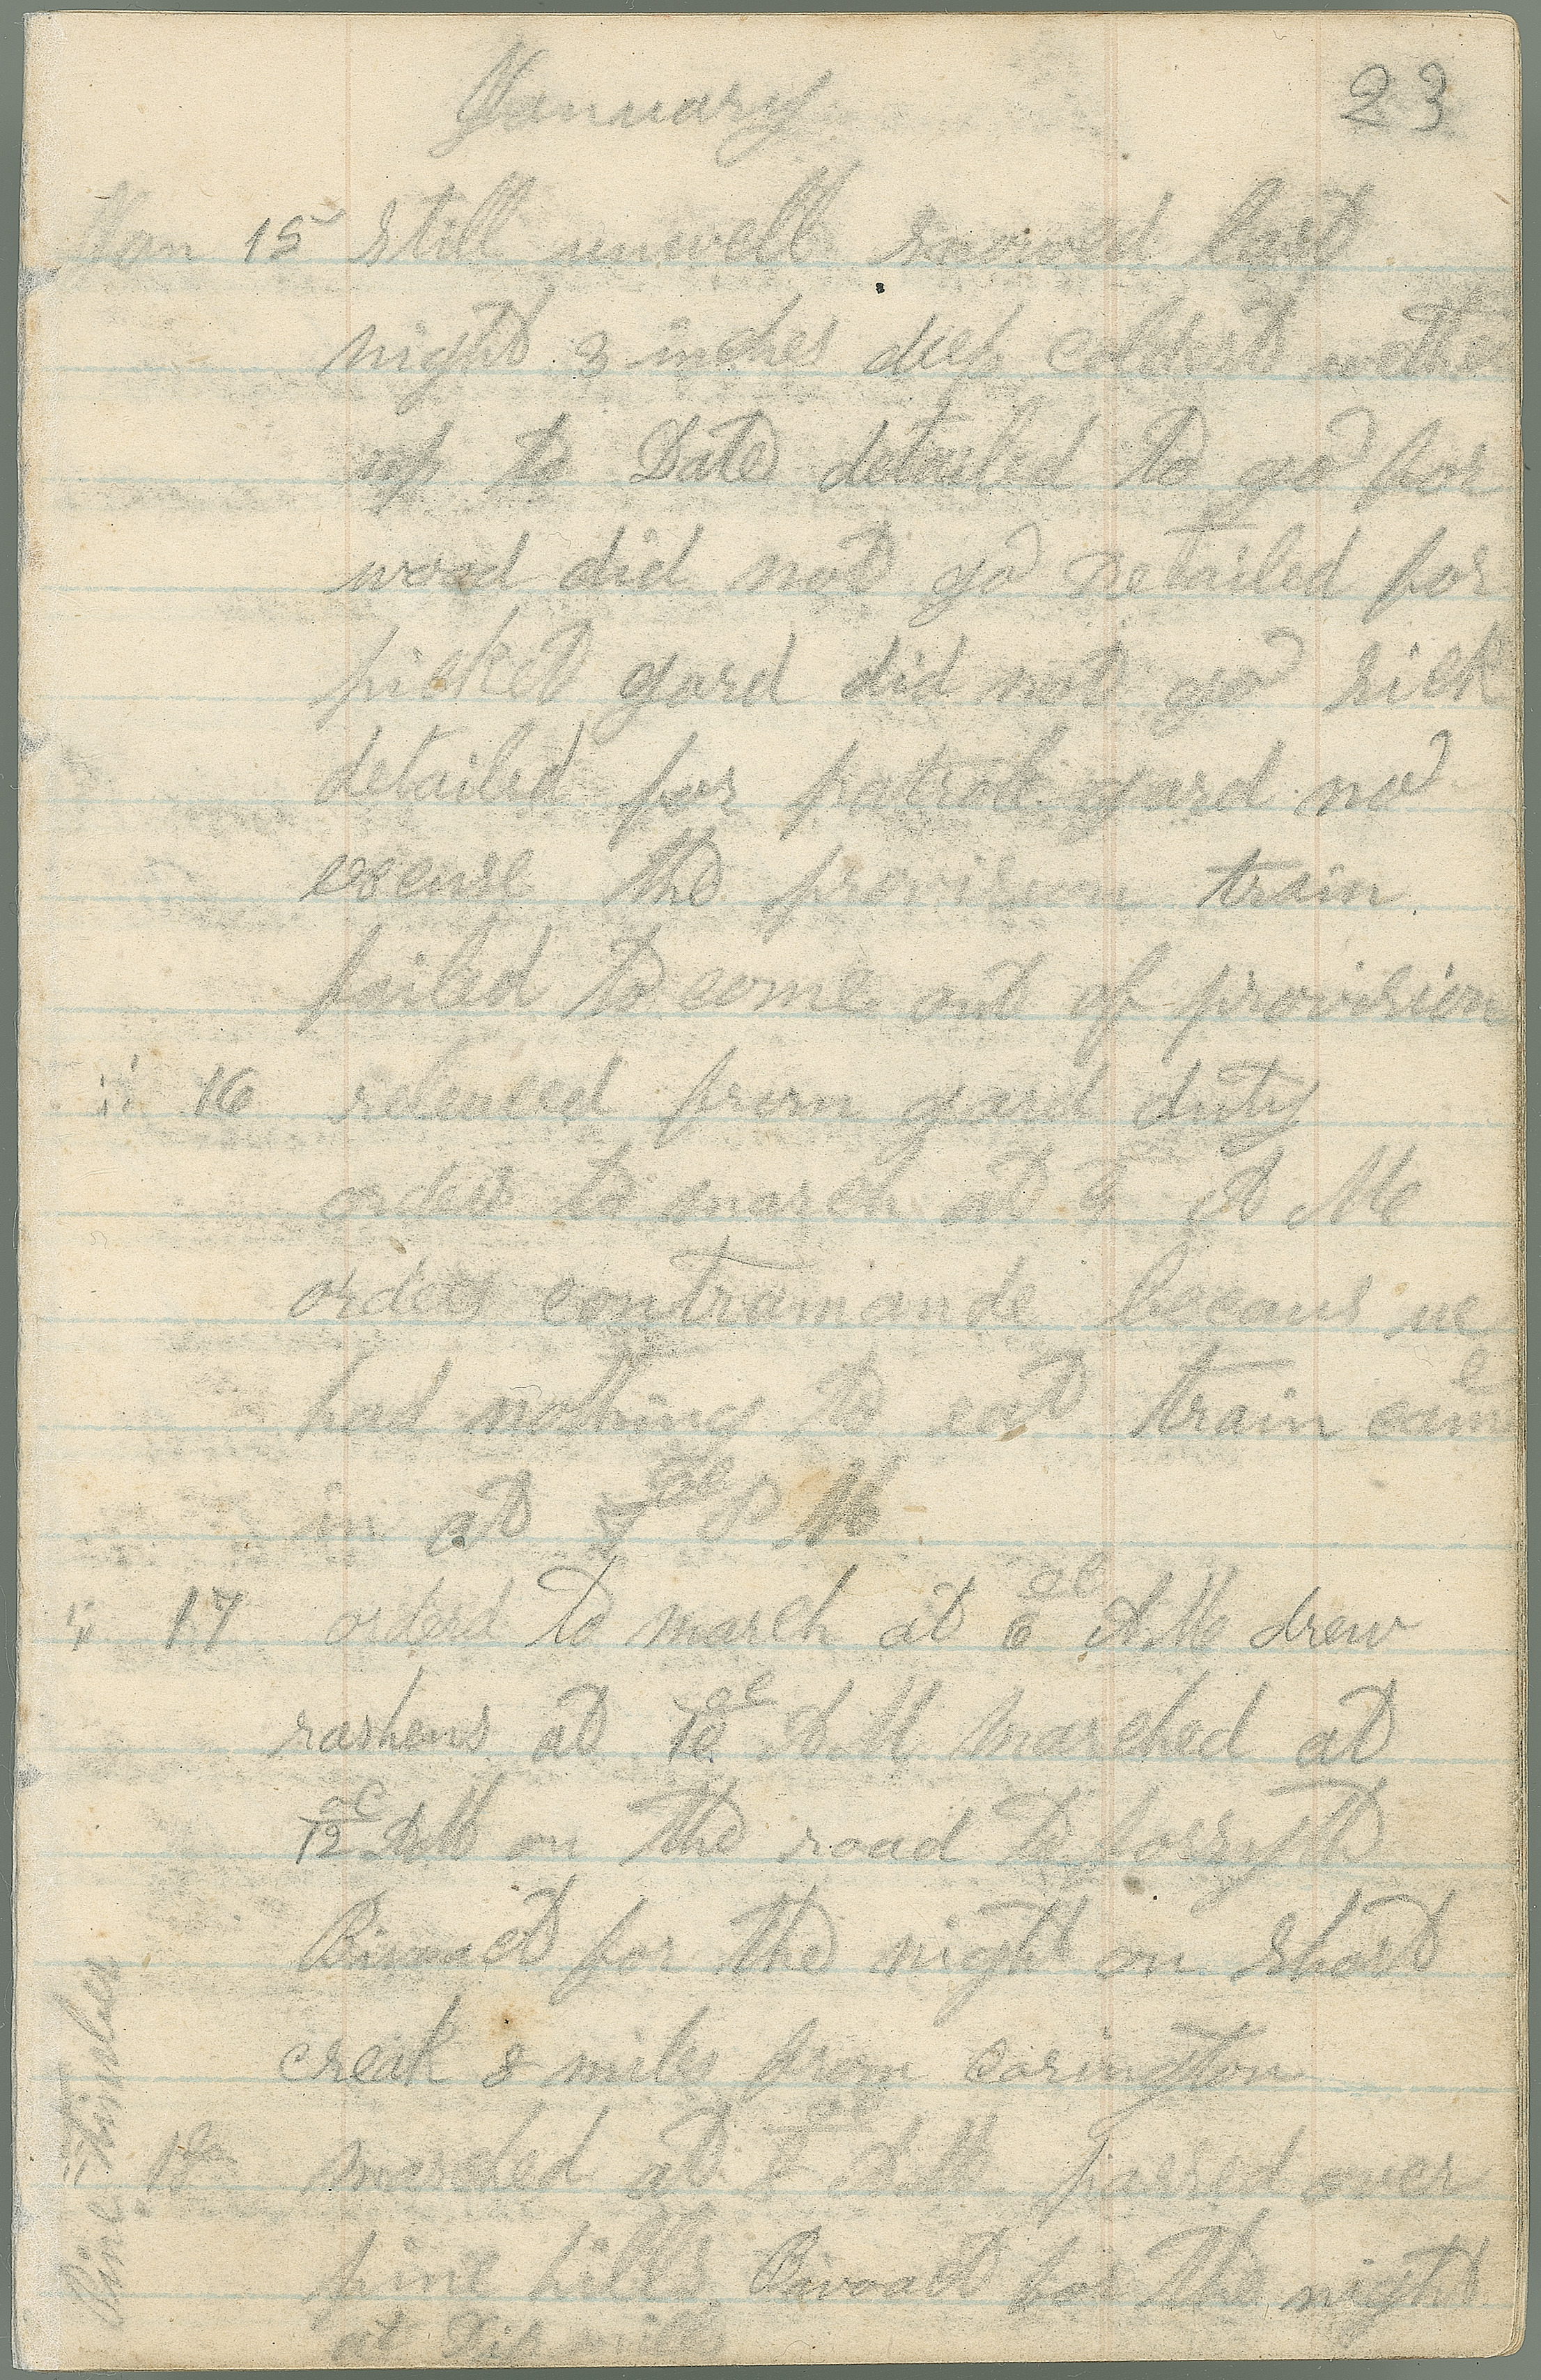 January
23
Jan 15 still unwell snowed last
night 3 inches deep coldest wether
up to Date detailed to go for
wood did not go Detailed for
picket gard did not go sick
detailed for patroll gard no
excuse the provision train
failed to come out of provision
" 16 releaced from gard duty
orders to march at A M
orders contramande becaus we
had nothing to eat train came
in at P M
" 17 orderd to march at 6 oc A.M drew
rashens at 10 oc A M Marched at
12 oc AM on the road to forsyth
Bivoact for the night on short
creak 8 miles from carington
" 18 Marched at 8 oc A.M. passed over
pine hills Bivoact for the night
at mill
Pine Timber